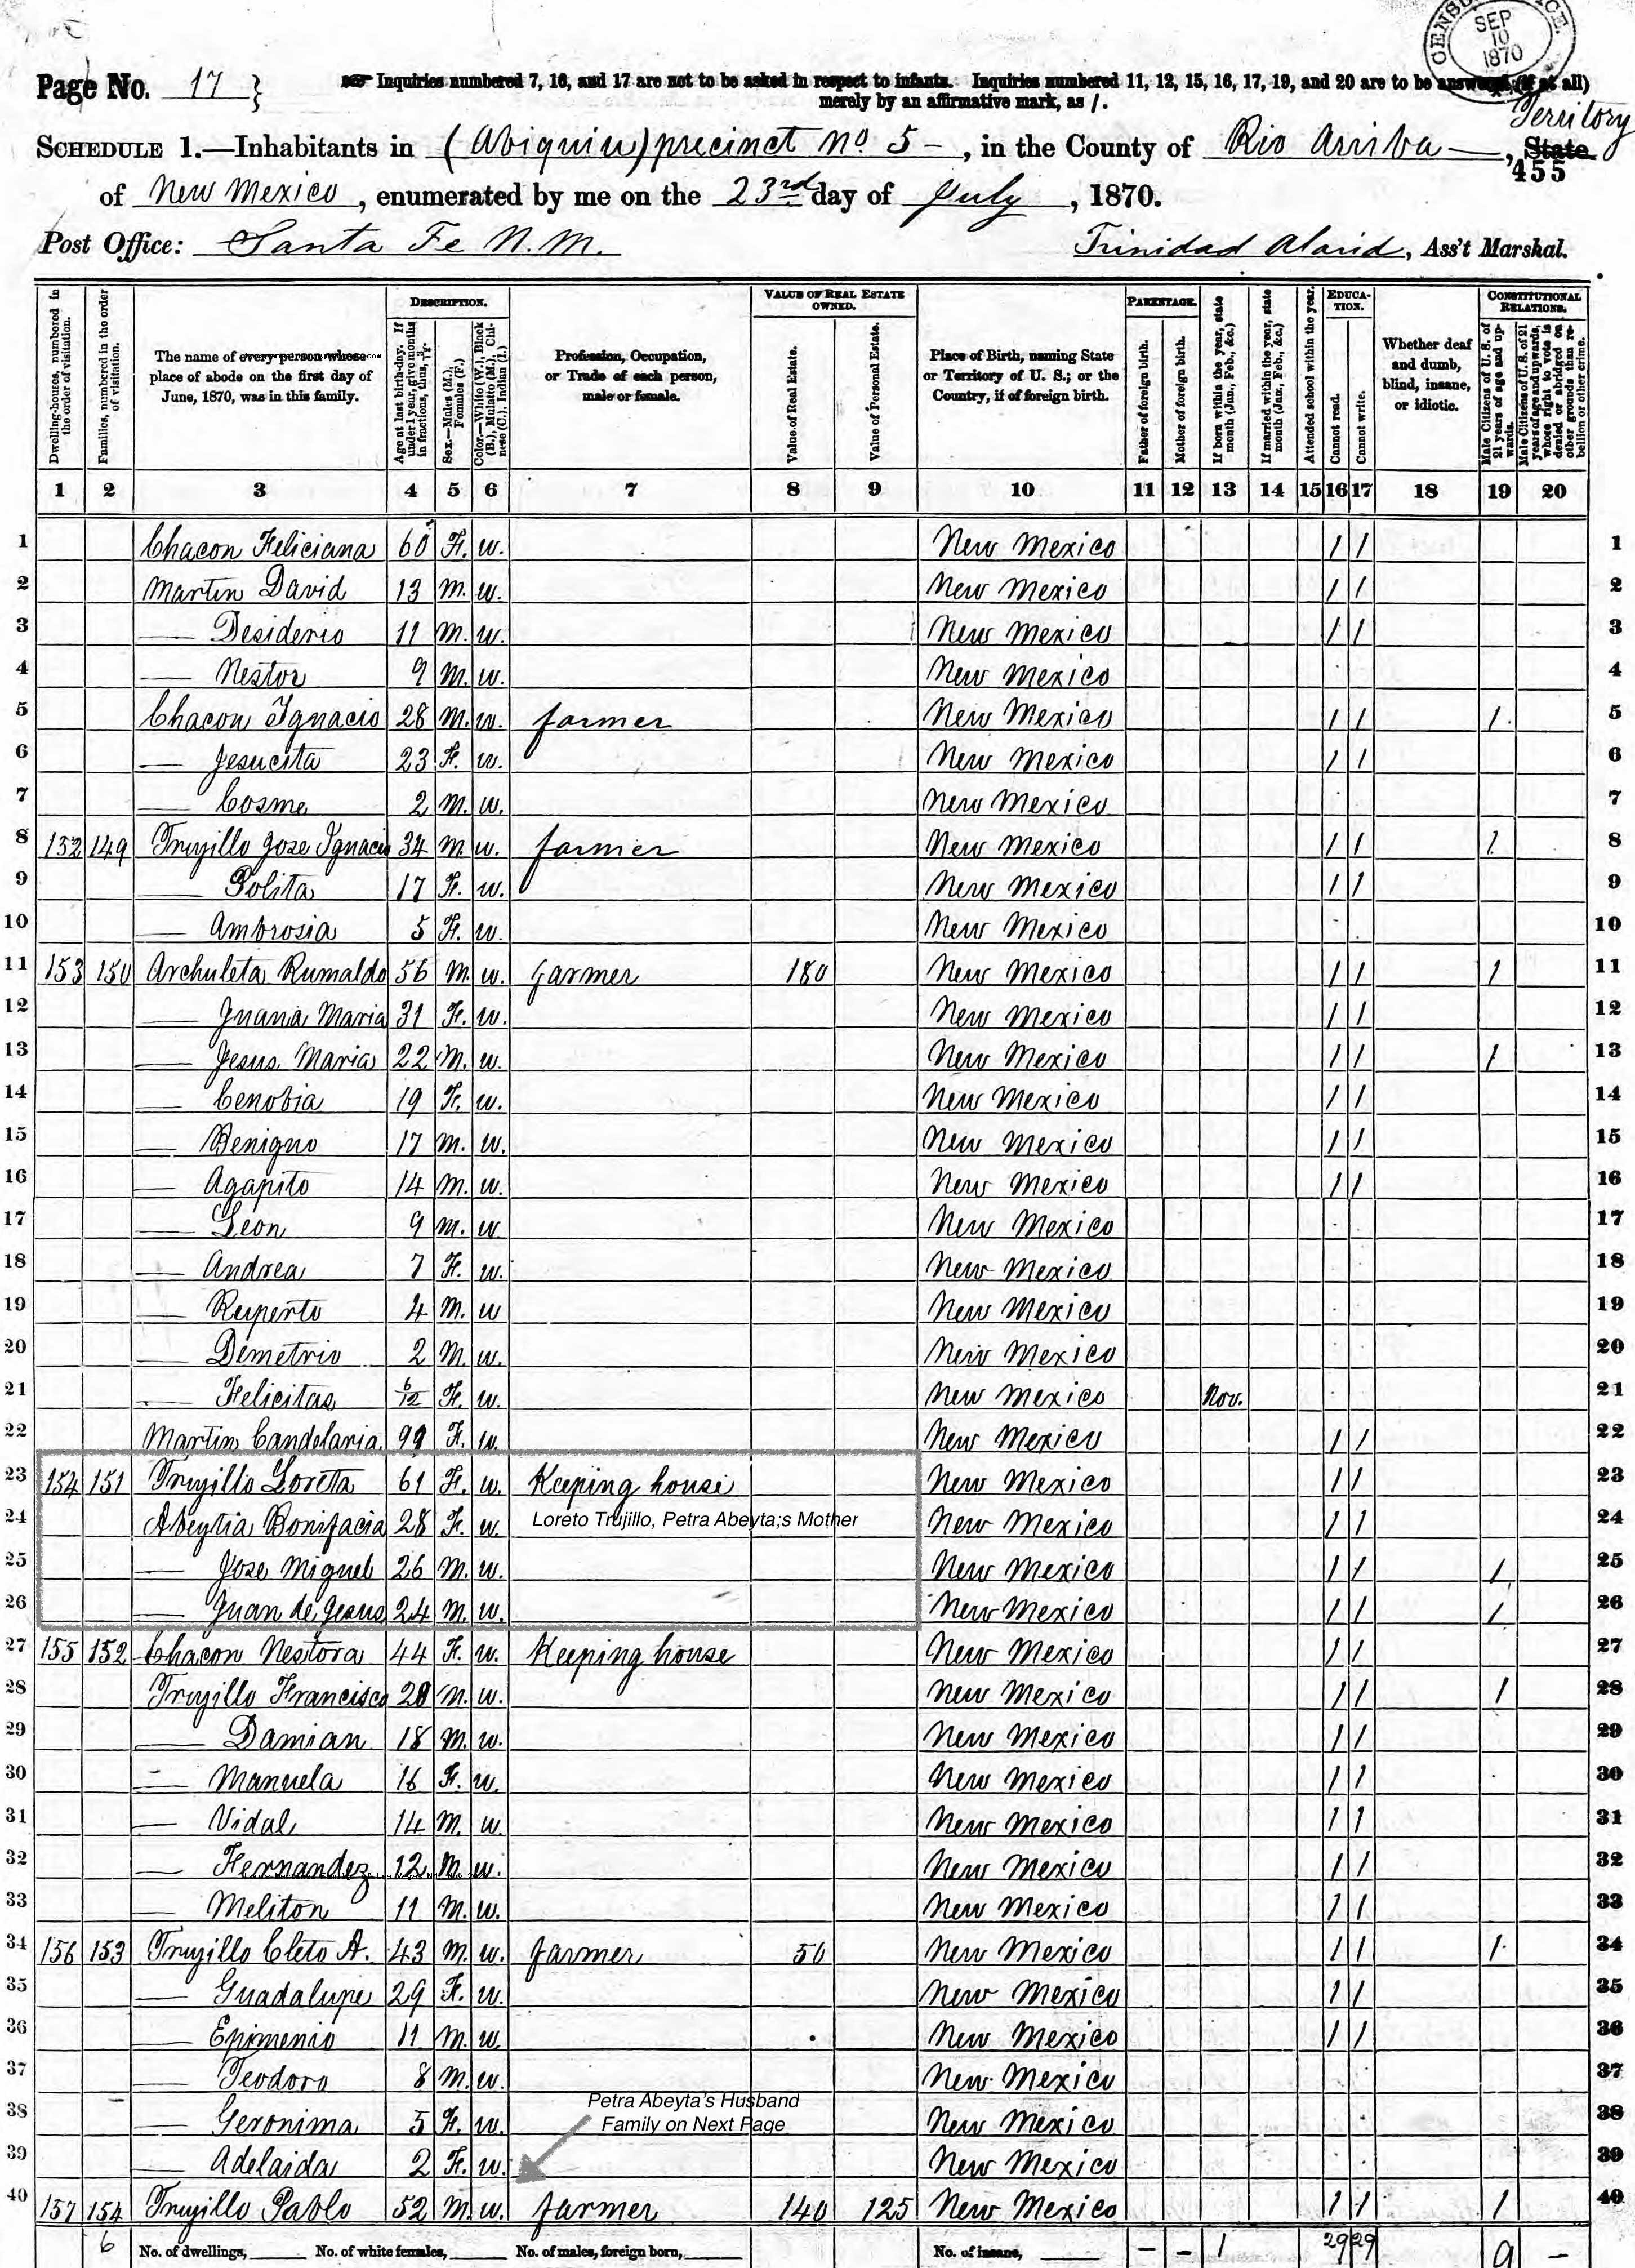 CENSUS OFFICE SEP 10 1870
Page No. 17 }
Inquiries numbered 7, 16, and 17 are not to be asked in respect to infants. Inquiries numbered 11, 12, 15, 16, 17, 19, and 20 are to be answered (if at all)
merely by an affirmative mark, as /.
Territory
SCHEDULE 1.—Inhabitants in (Abiquiu) precinct no 5 -, in the County of Rio Arriba —, State
455
of New Mexico, enumerated by me on the 23rd day of July, 1870.
Post Office: Santa Fe N.M. Trinidad Alarid, Ass't Marshal.
Dwelling-houses, numbered in the order of visitation.
Families, numbered in the order of visitation.
The name of every person whose place of abode on the first day of June, 1870, was in this family.
DESCRIPTION.
Age at last birth-day. If under 1 year, give months in fractions, thus,
Sex.—Males (M.), Females (F.)
Color.—White (W.), Black (B.), Mulatto (M.), Chinese (C.), Indian (I.)
Profession, Occupation, or Trade of each person, male or female.
VALUE OF REAL ESTATE OWNED.
Value of Real Estate.
Value of Personal Estate.
Place of Birth, naming State or Territory of U. S.; or the Country, if of foreign birth.
PARENTAGE.
Father of foreign birth.
Mother of foreign birth.
If born within the year, state month (Jan., Feb., &c.)
If married within the year, state month (Jan., Feb., &c.)
Attended school within the year.
EDUCATION.
Cannot read.
Cannot write.
Whether deaf and dumb, blind, insane, or idiotic.
CONSTITUTIONAL RELATIONS.
Male Citizens of U. S. of 21 years of age and upwards.
Male Citizens of U. S. of 21 years of age and upwards, whose right to vote is denied or abridged on other grounds than rebellion or other crime.
1 2 3 4 5 6 7 8 9 10 11 12 13 14 15 16 17 18 19 20
1 Chacon Feliciana 60 F. w. New Mexico / / 1
2 Martin David 13 M. w. New Mexico / / 2
3 — Desiderio 11 M. w. New Mexico / / 3
4 — Nestor 9 M. w. New Mexico 4
5 Chacon Ignacio 28 M. w. farmer New Mexico / / / 5
6 — Jesucita 23 F. w. New Mexico / / 6
7 — Cosme 2 M. w. New Mexico 7
8 152 149 Trujillo Jose Ignacio 34 M w. farmer New Mexico / / / 8
9 — Polita 17 F. w. New Mexico / / 9
10 — Ambrosia 5 F. w. New Mexico 10
11 153 150 Archuleta Rumaldo 56 M. w. farmer 180 New Mexico / / / 11
12 — Juana Maria 31 F. w. New Mexico / / 12
13 — Jesus Maria 22 M. w. New Mexico / / / 13
14 — Cenobia 19 F. w. New Mexico / / 14
15 — Benigno 17 M. w. New Mexico / / 15
16 — Agapito 14 M. w. New Mexico / / 16
17 — Leon 9 M. w. New Mexico 17
18 — Andrea 7 F. w. New Mexico 18
19 — Ruperto 4 M. w New Mexico 19
20 — Demetrio 2 M. w. New Mexico 20
21 — Felicitas 6/12 F. w. New Mexico Nov. 21
22 Martin Candelaria 99 F. w. New Mexico / / 22
23 154 151 Trujillo Loreta 61 F. w. Keeping house New Mexico / / 23
24 Abeytia Bonifacia 28 F. w. Loreto Trujillo, Petra Abeyta;s Mother New Mexico / / 24
25 — Jose Miguel 26 M. w. New Mexico / / / 25
26 — Juan de Jesus 24 M. w. New Mexico / / / 26
27 155 152 Chacon Nestora 44 F. w. Keeping house New Mexico / / 27
28 Trujillo Francisco 20 M. w. New Mexico / / / 28
29 — Damian 18 M. w. New Mexico / / 29
30 — Manuela 16 F. w. New Mexico / / 30
31 — Vidal 14 M. w. New Mexico / / 31
32 — Hernandez 12 M. w. New Mexico / / 32
33 — Meliton 11 M. w. New Mexico / / 33
34 156 153 Trujillo Cleto A. 43 M. w. farmer 50 New Mexico / / / 34
35 — Guadalupe 29 F. w. New Mexico / / 35
36 — Epimenio 11 M. w. New Mexico / / 36
37 — Teodoro 8 M. w. New Mexico 37
Petra Abeyta's Husband
38 — Geronima 5 F. w. Family on Next Page New Mexico 38
39 — Adelaida 2 F. w. New Mexico 39
40 157 154 Trujillo Pablo 52 M. w. farmer 140 125 New Mexico / / / 40
6 No. of dwellings, No. of white females, No. of males, foreign born, No. of insane, — — 1 29 29 9 —